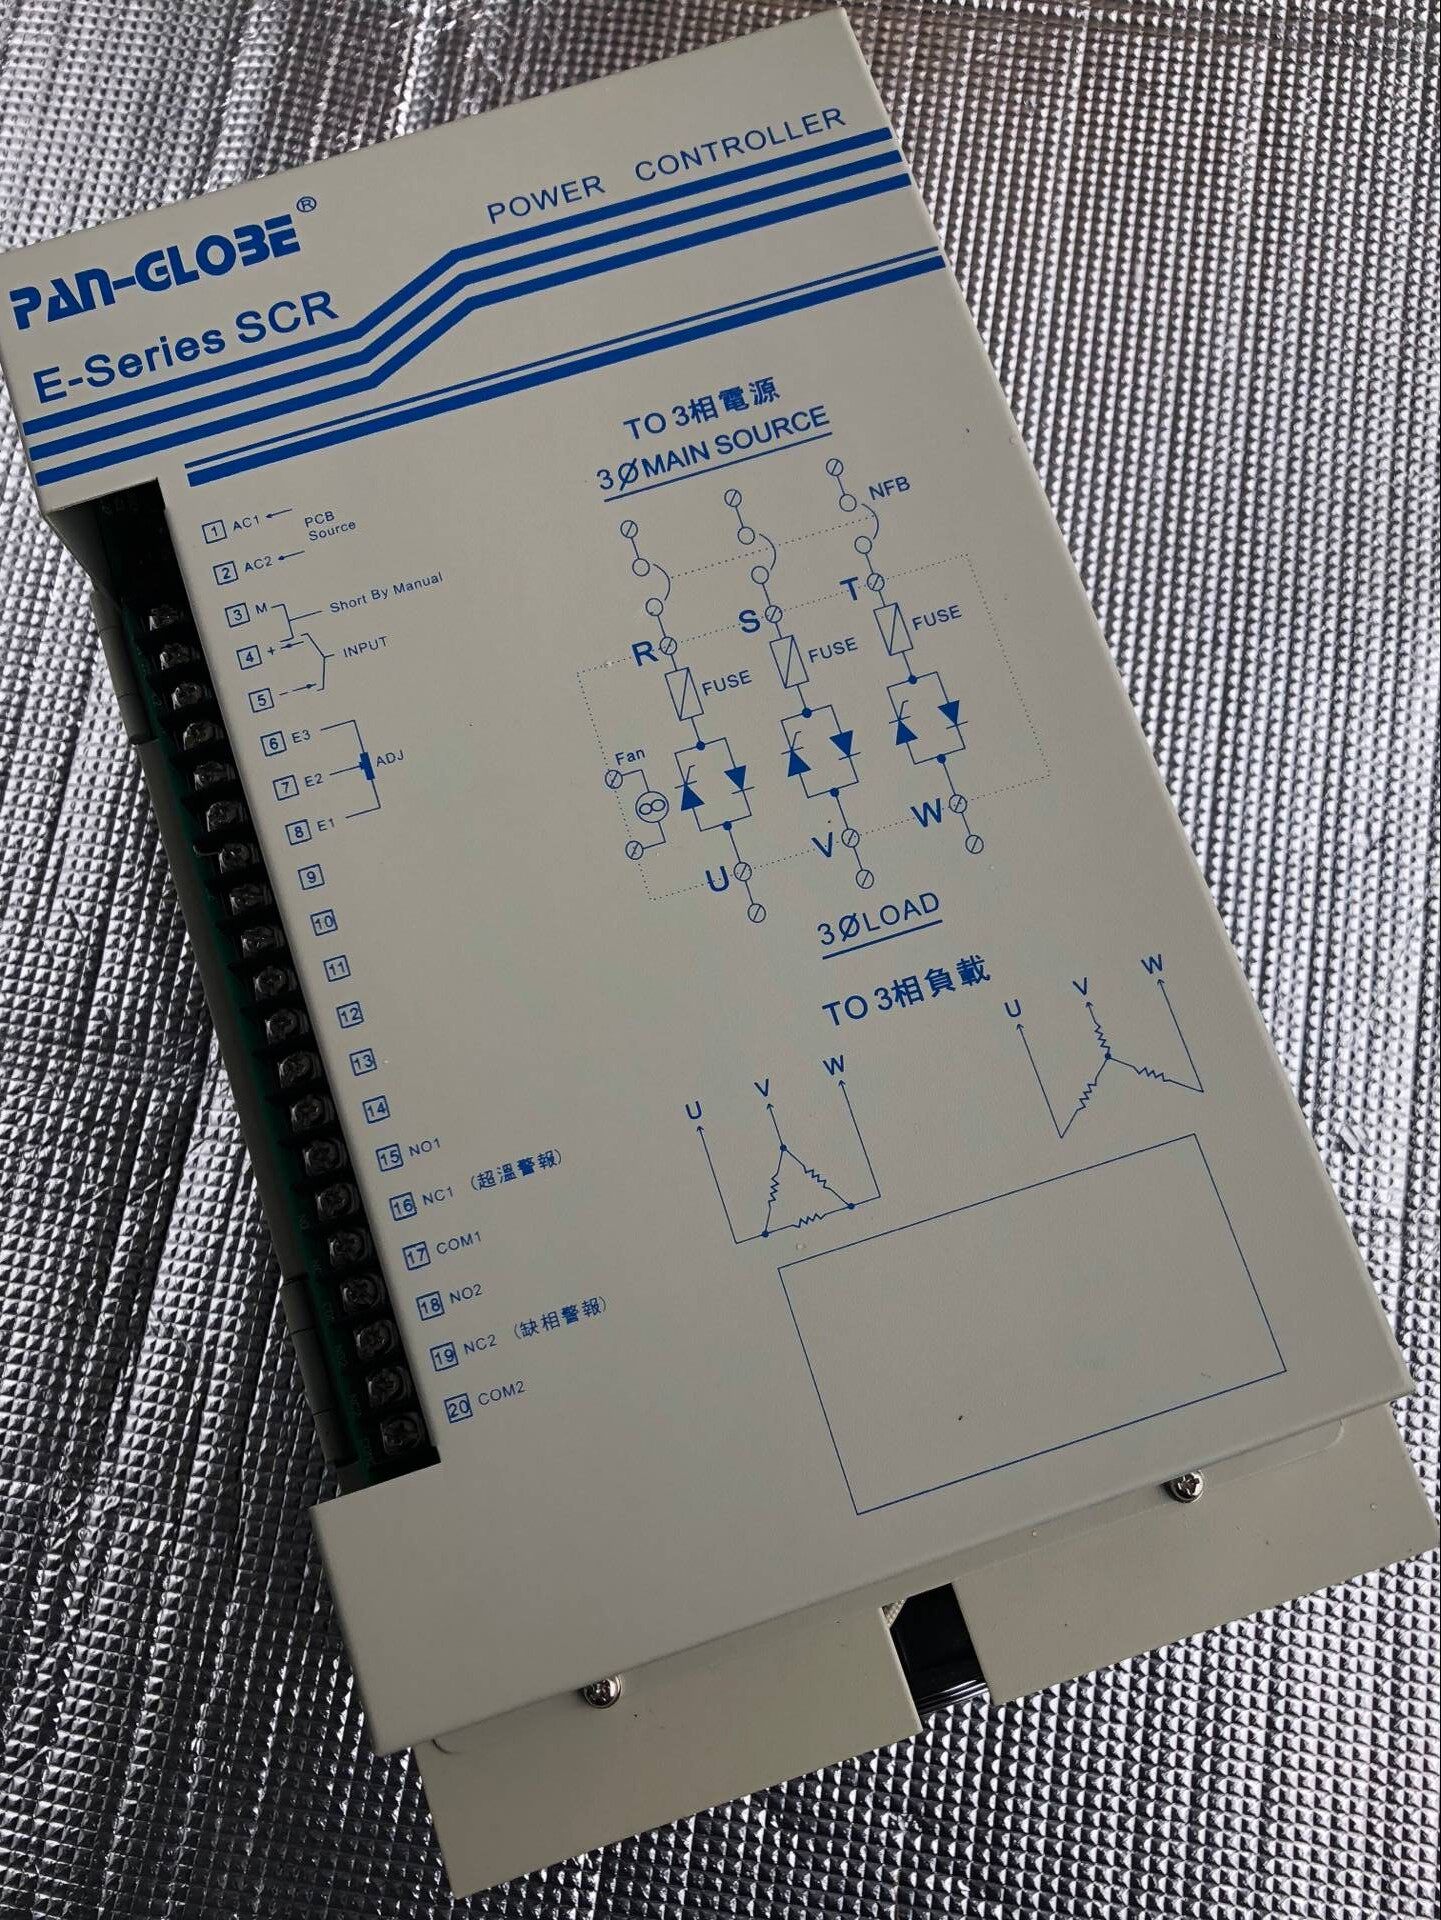 POWER CONTROLLER
PAN-GLOBE®
E-Series SCR
TO 3相電源
3ØMAIN SOURCE
NFB
R
S
T
FUSE
FUSE
FUSE
Fan
U
V
W
3ØLOAD
TO 3相負載
U
V
W
U
V
W
1 AC1
PCB
Source
2 AC2
3 M
Short By Manual
4 +
INPUT
5 -
6 E3
7 E2
ADJ
8 E1
9
10
11
12
13
14
15 NO1
16 NC1 (超溫警報)
17 COM1
18 NO2
19 NC2 (缺相警報)
20 COM2